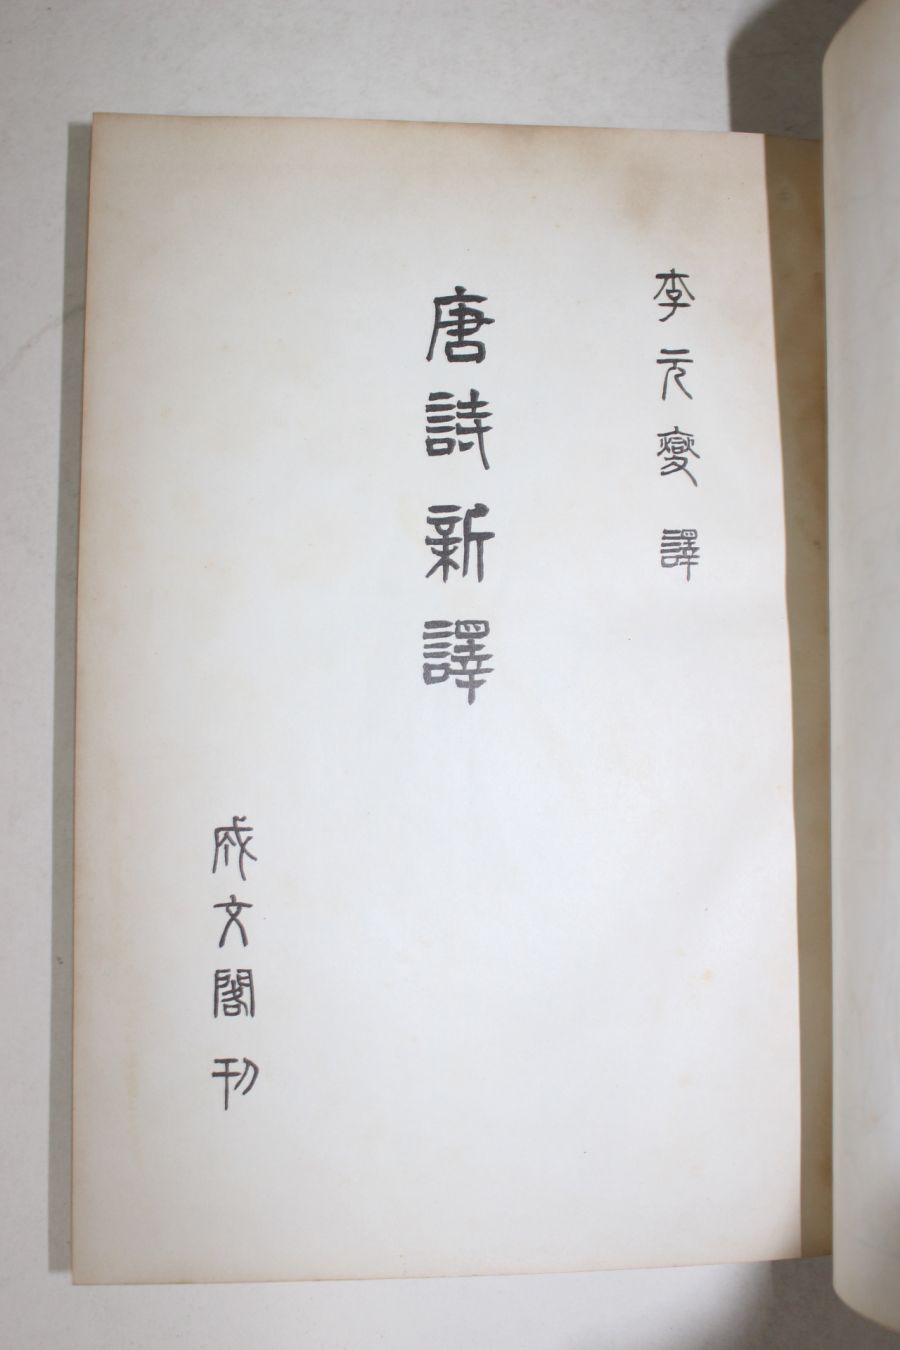 李元燮 譯
唐詩新譯
成文閣 刊